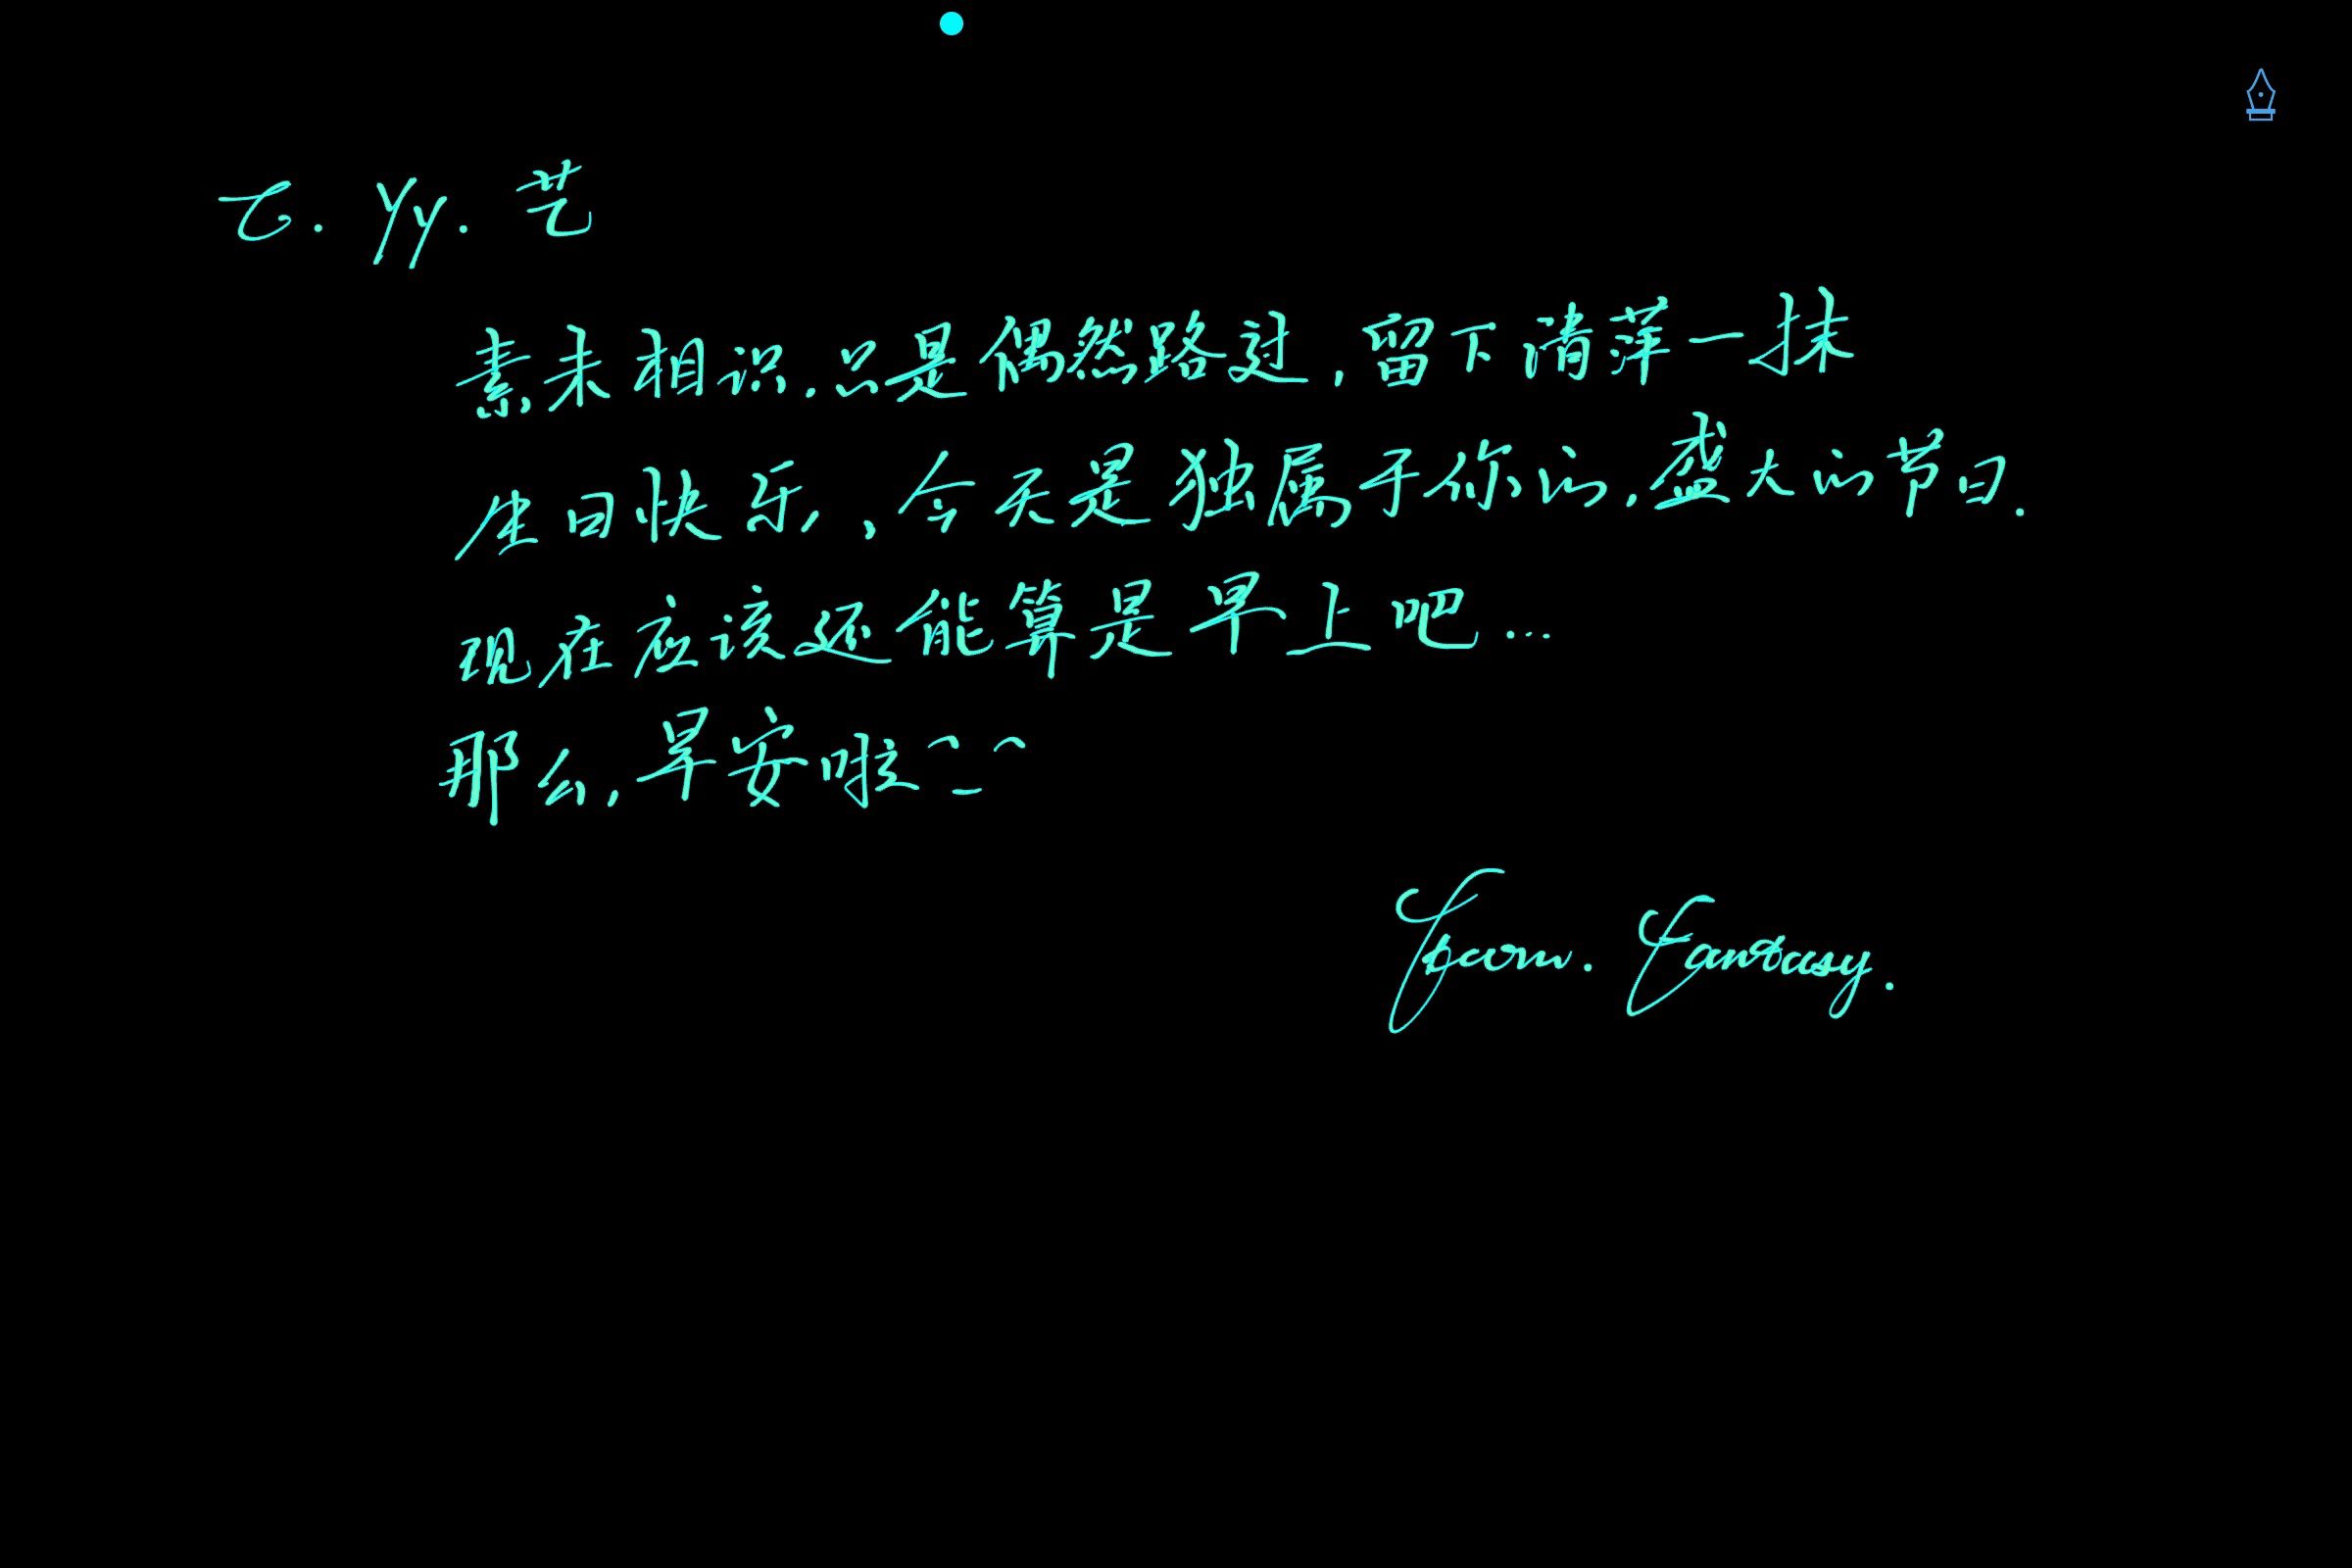 Yy. 艺
素未相识,只是偶然路过,留下清萍一抹
生日快乐,今天是独属于你的,盛大的节日.
现在应该还能算是早上吧...
那么,早安啦^_^
From. Fantasy.